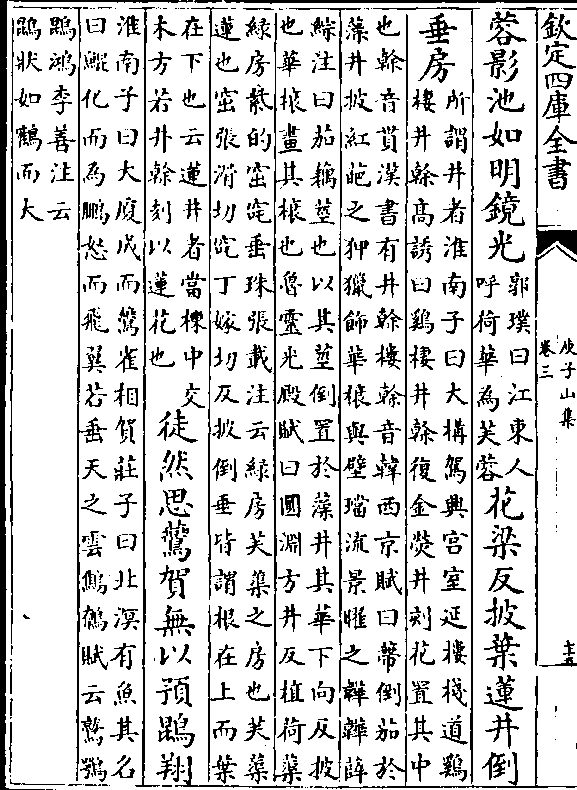 欽定四庫全書
庾子山集
卷三
十五
蓉影池如明鏡光
郭璞曰江東人
呼荷華為芙蓉
花梁反披葉蓮井倒
垂房
所謂井者淮南子曰大構駕興宫室延樓棧道鷄
棲井幹髙誘曰鷄棲井幹復金熒井刻花置其中
也幹音貫漢書有井幹樓幹音韓西京賦曰蔕倒茄於
藻井披紅葩之狎獵飾華榱與壁璫流景曜之韡韡薛
綜注曰茄藕莖也以其莖倒置於藻井其華下向反披
也華榱畫其榱也魯靈光殿賦曰圓淵方井反植荷蕖
緑房紫的窋窊垂珠張載注云緑房芙蕖之房也芙蕖
蓮也窋張滑切窊丁嫁切反披倒垂皆謂根在上而葉
在下也云蓮井者當棟中交
木方若井幹刻以蓮花也
徒然思鷰賀無以預鵾翔
淮南子曰大厦成而鷰雀相賀莊子曰北溟有魚其名
曰鯤化而為鵬怒而飛翼若垂天之雲鷦鷯賦云鷲鶚
鵾鴻李善注云
鵾狀如鶴而大